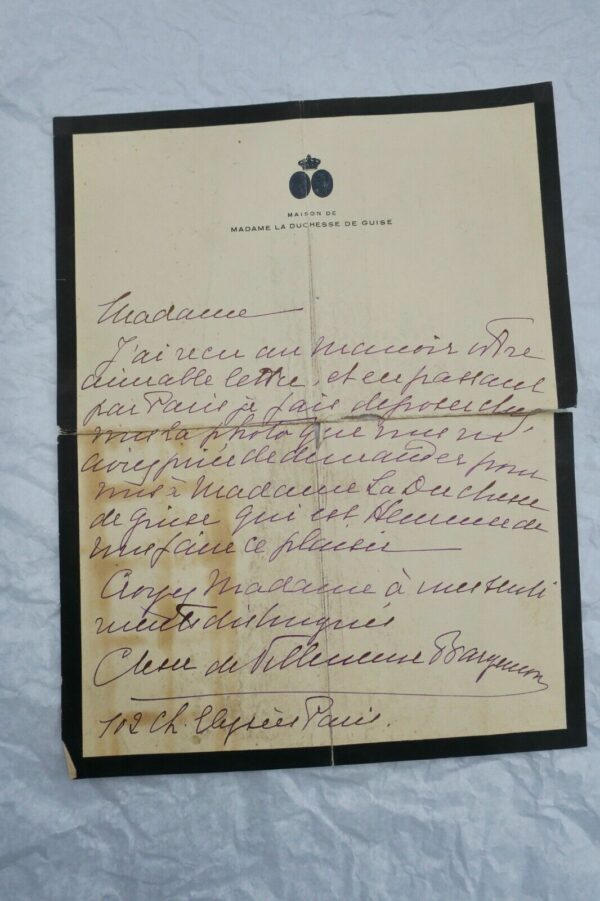 MAISON DE
MADAME LA DUCHESSE DE GUISE
Madame
J'ai reçu au manoir votre
aimable lettre, et en passant
par Paris je fais déposer chez
vous la photo que vous m'
aviez priée de demander pour
vous à Madame La Duchesse
de Guise qui est heureuse de
vous faire ce plaisir
Croyez Madame à mes senti
ments distingués
Ctesse de Villeneuve Bargemon
102 Ch. Elysées Paris.